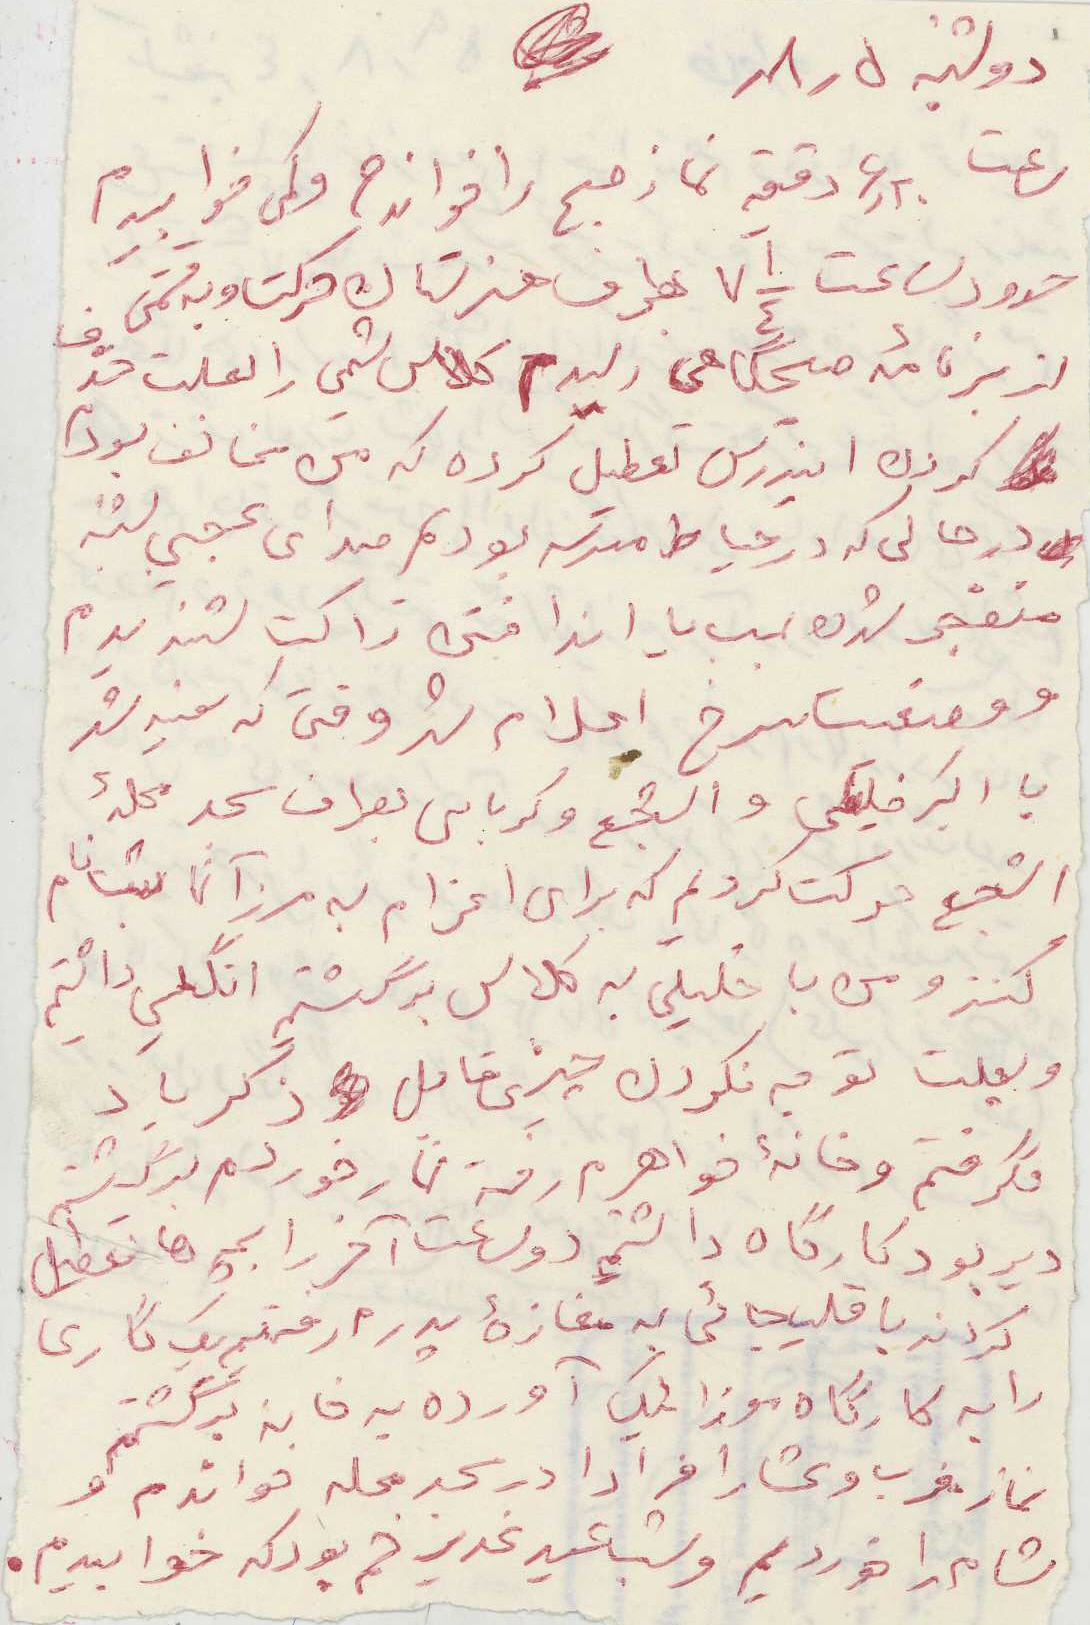 دوشنبه ۵ر۸ر
ساعت ۶ر۲۰ دقیقه نماز صبح را خواندم و کمی خوابیدم
حدود ساعت ۷ ۱/۴ بطرف هنرستان حرکت و به قسمتی
از برنامهٔ صبحگاهی رسیدم کلاس شیمی را بعلت حذف
کردن اینترس تعطیل کرده که من مخالف بودم
در حالی که در حیاط مدرسه بودم صدای عجیبی شبیه
منفجر شدن بمب یا انداختن راکت شنیدم
و وضعیت سرخ اعلام شد وقتی که سفید شد
با اکبر خلیلی و اشجع و کرباسی بطرف مسجد محلهٔ
اشجع حرکت کردیم که برای اعزام به مرز آنها ثبت نام
کنند و من با خلیلی به کلاس برگشتم انگلیسی داشتیم
و بعلت توجه نکردن چیزی قابل ذکر یاد
نگرفتم و خانهٔ خواهرم رفته نهار خوردم برگشتم
دیر بود کارگاه داشتیم دو ساعت آخر را بچه ها تعطیل
کردند با قلیچائی به مغازهٔ پدرم رفتیم یک گاری
را به کارگاه موزائیک آورده به خانه برگشتم
نماز مغرب و عشا را فرادا در مسجد محله خواندم و
شام را خوردیم و شب عید غدیر خم بود که خوابیدیم.